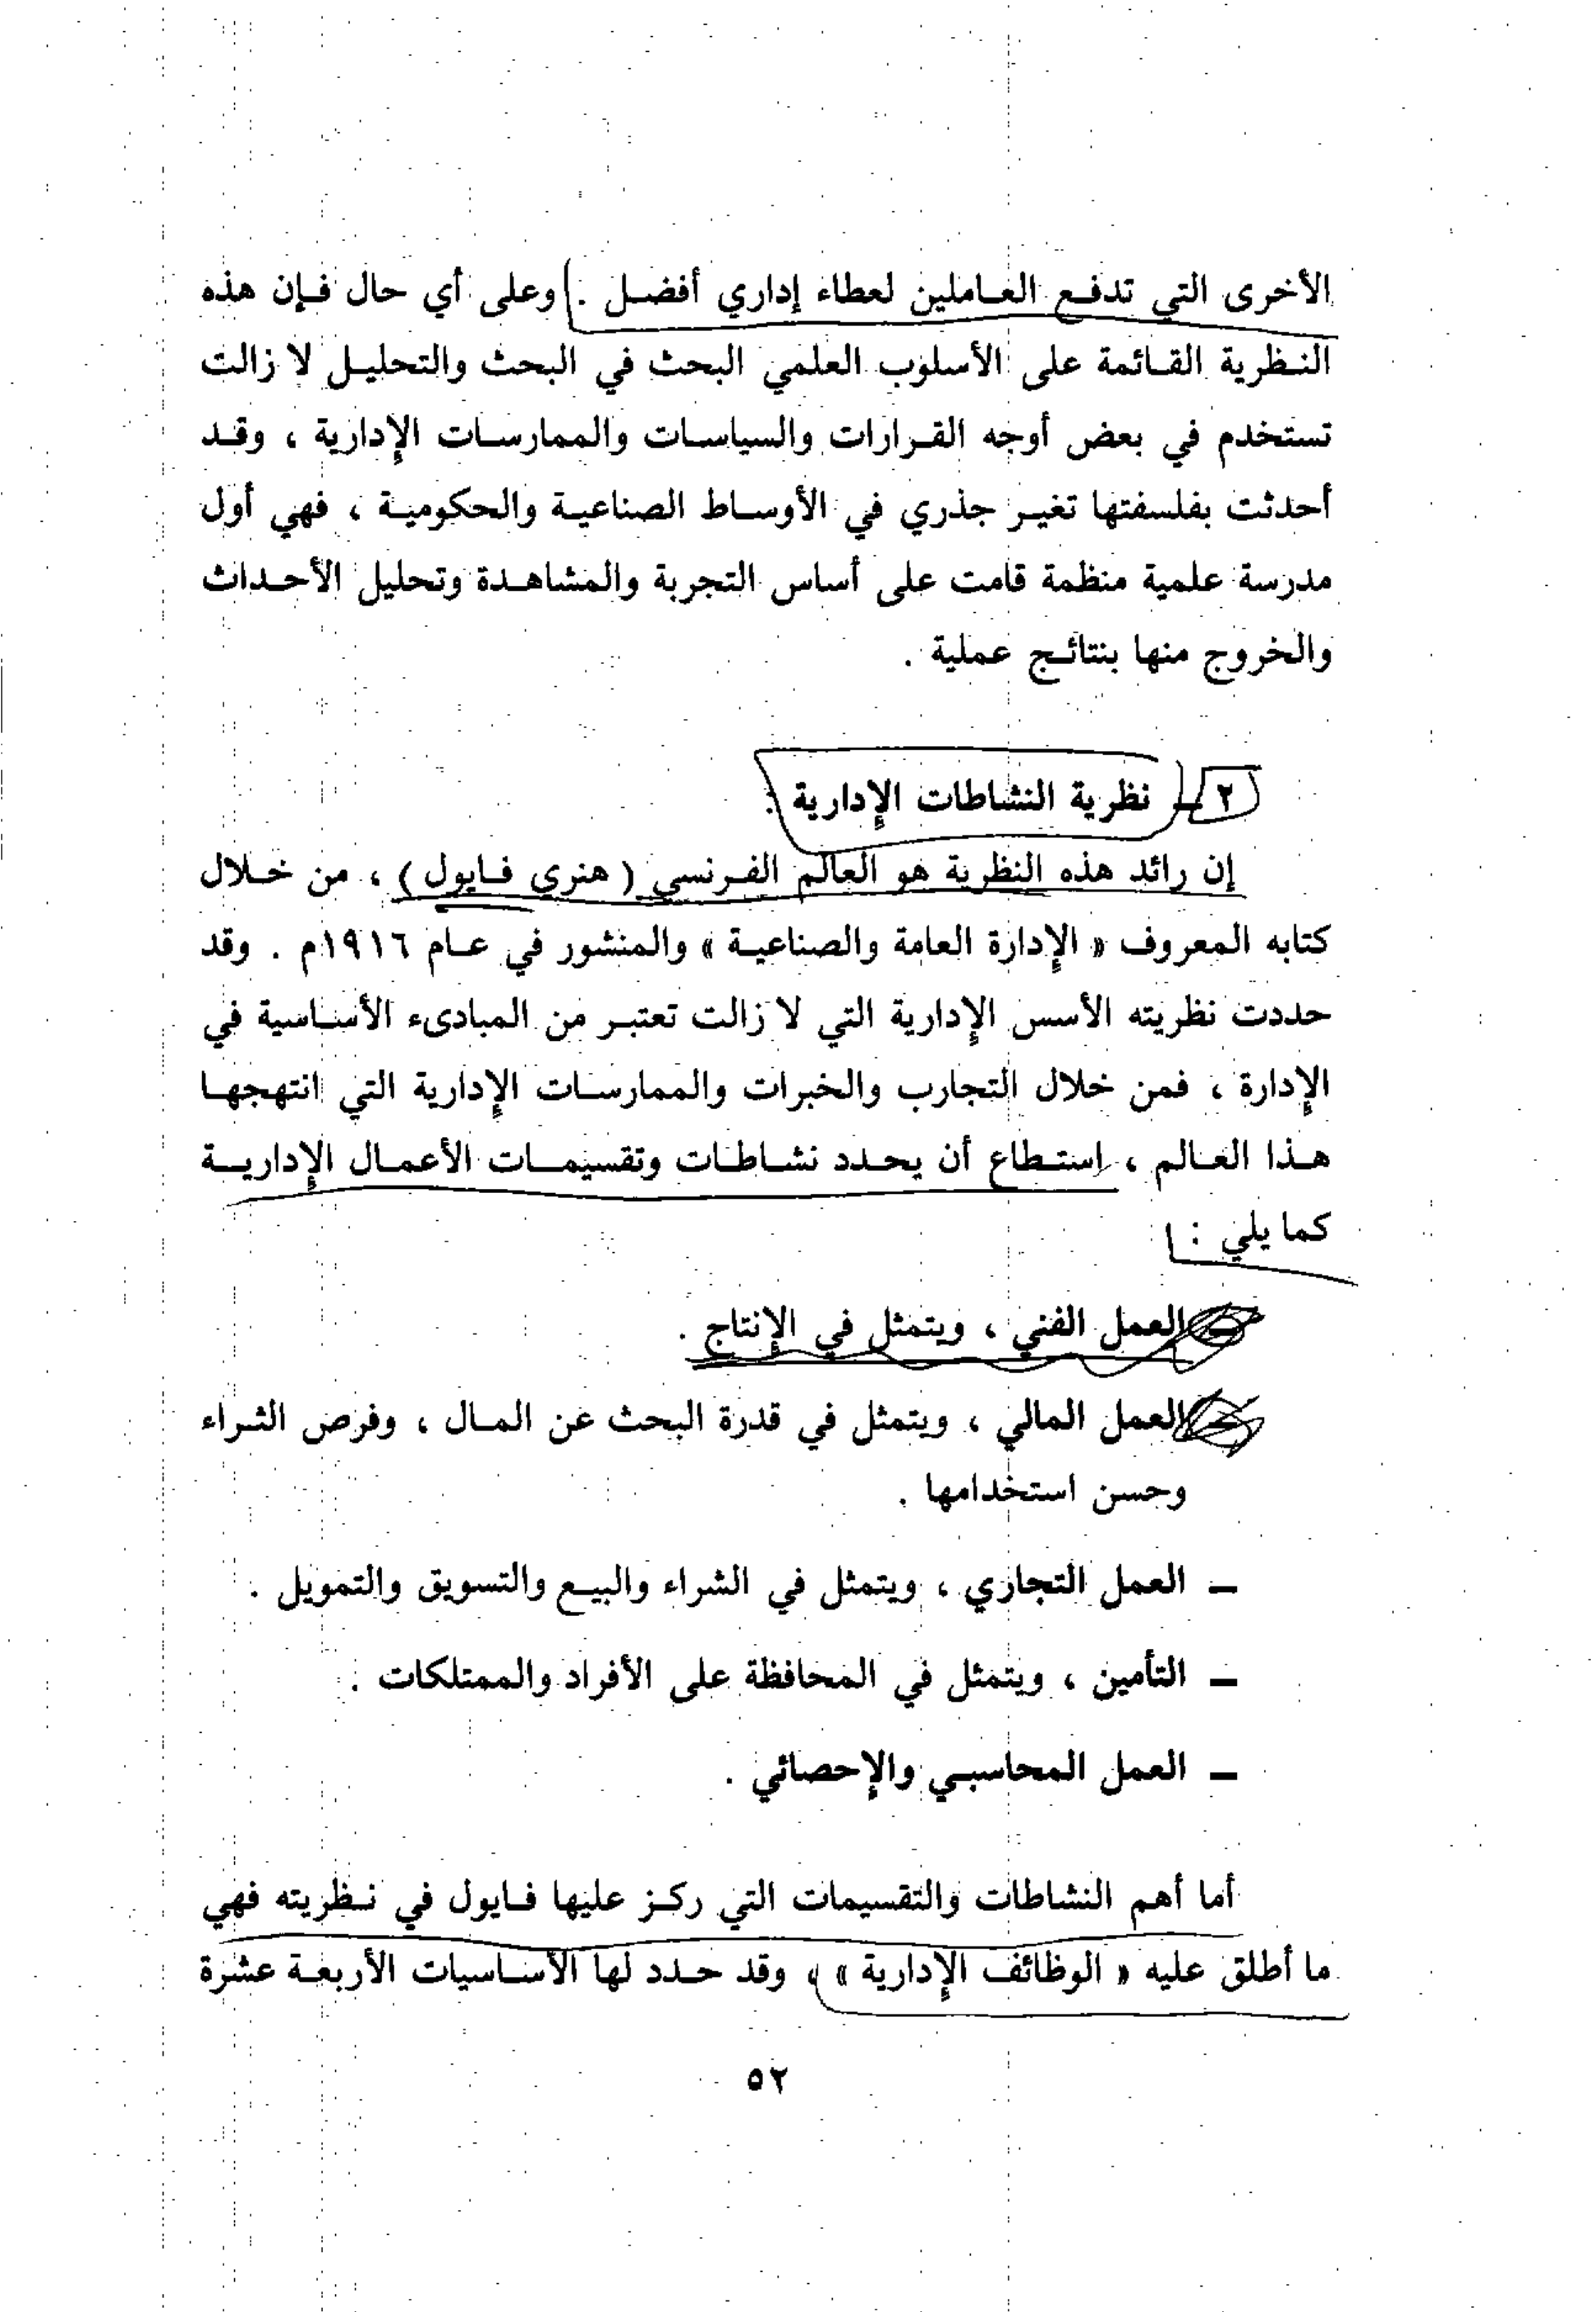 الأخرى التي تدفع العاملين لعطاء إداري أفضل . وعلى أي حال فإن هذه
النظرية القائمة على الأسلوب العلمي البحث في البحث والتحليل لا زالت
تستخدم في بعض أوجه القرارات والسياسات والممارسات الإدارية ، وقد
أحدثت بفلسفتها تغير جذري في الأوساط الصناعية والحكومية ، فهي أول
مدرسة علمية منظمة قامت على أساس التجربة والمشاهدة وتحليل الأحداث
والخروج منها بنتائج عملية .
٢ ـ نظرية النشاطات الإدارية :
إن رائد هذه النظرية هو العالم الفرنسي ( هنري فايول ) ، من خلال
كتابه المعروف « الإدارة العامة والصناعية » والمنشور في عام ١٩١٦م . وقد
حددت نظريته الأسس الإدارية التي لا زالت تعتبر من المبادىء الأساسية في
الإدارة ، فمن خلال التجارب والخبرات والممارسات الإدارية التي انتهجها
هذا العالم ، إستطاع أن يحدد نشاطات وتقسيمات الأعمال الإدارية
كما يلي :
ـ العمل الفني ، ويتمثل في الإنتاج .
ـ العمل المالي ، ويتمثل في قدرة البحث عن المال ، وفرص الشراء
وحسن استخدامها .
ـ العمل التجاري ، ويتمثل في الشراء والبيع والتسويق والتمويل .
ـ التأمين ، ويتمثل في المحافظة على الأفراد والممتلكات .
ـ العمل المحاسبي والإحصائي .
أما أهم النشاطات والتقسيمات التي ركز عليها فايول في نظريته فهي
ما أطلق عليه « الوظائف الإدارية » ، وقد حدد لها الأساسيات الأربعة عشرة
٥٢